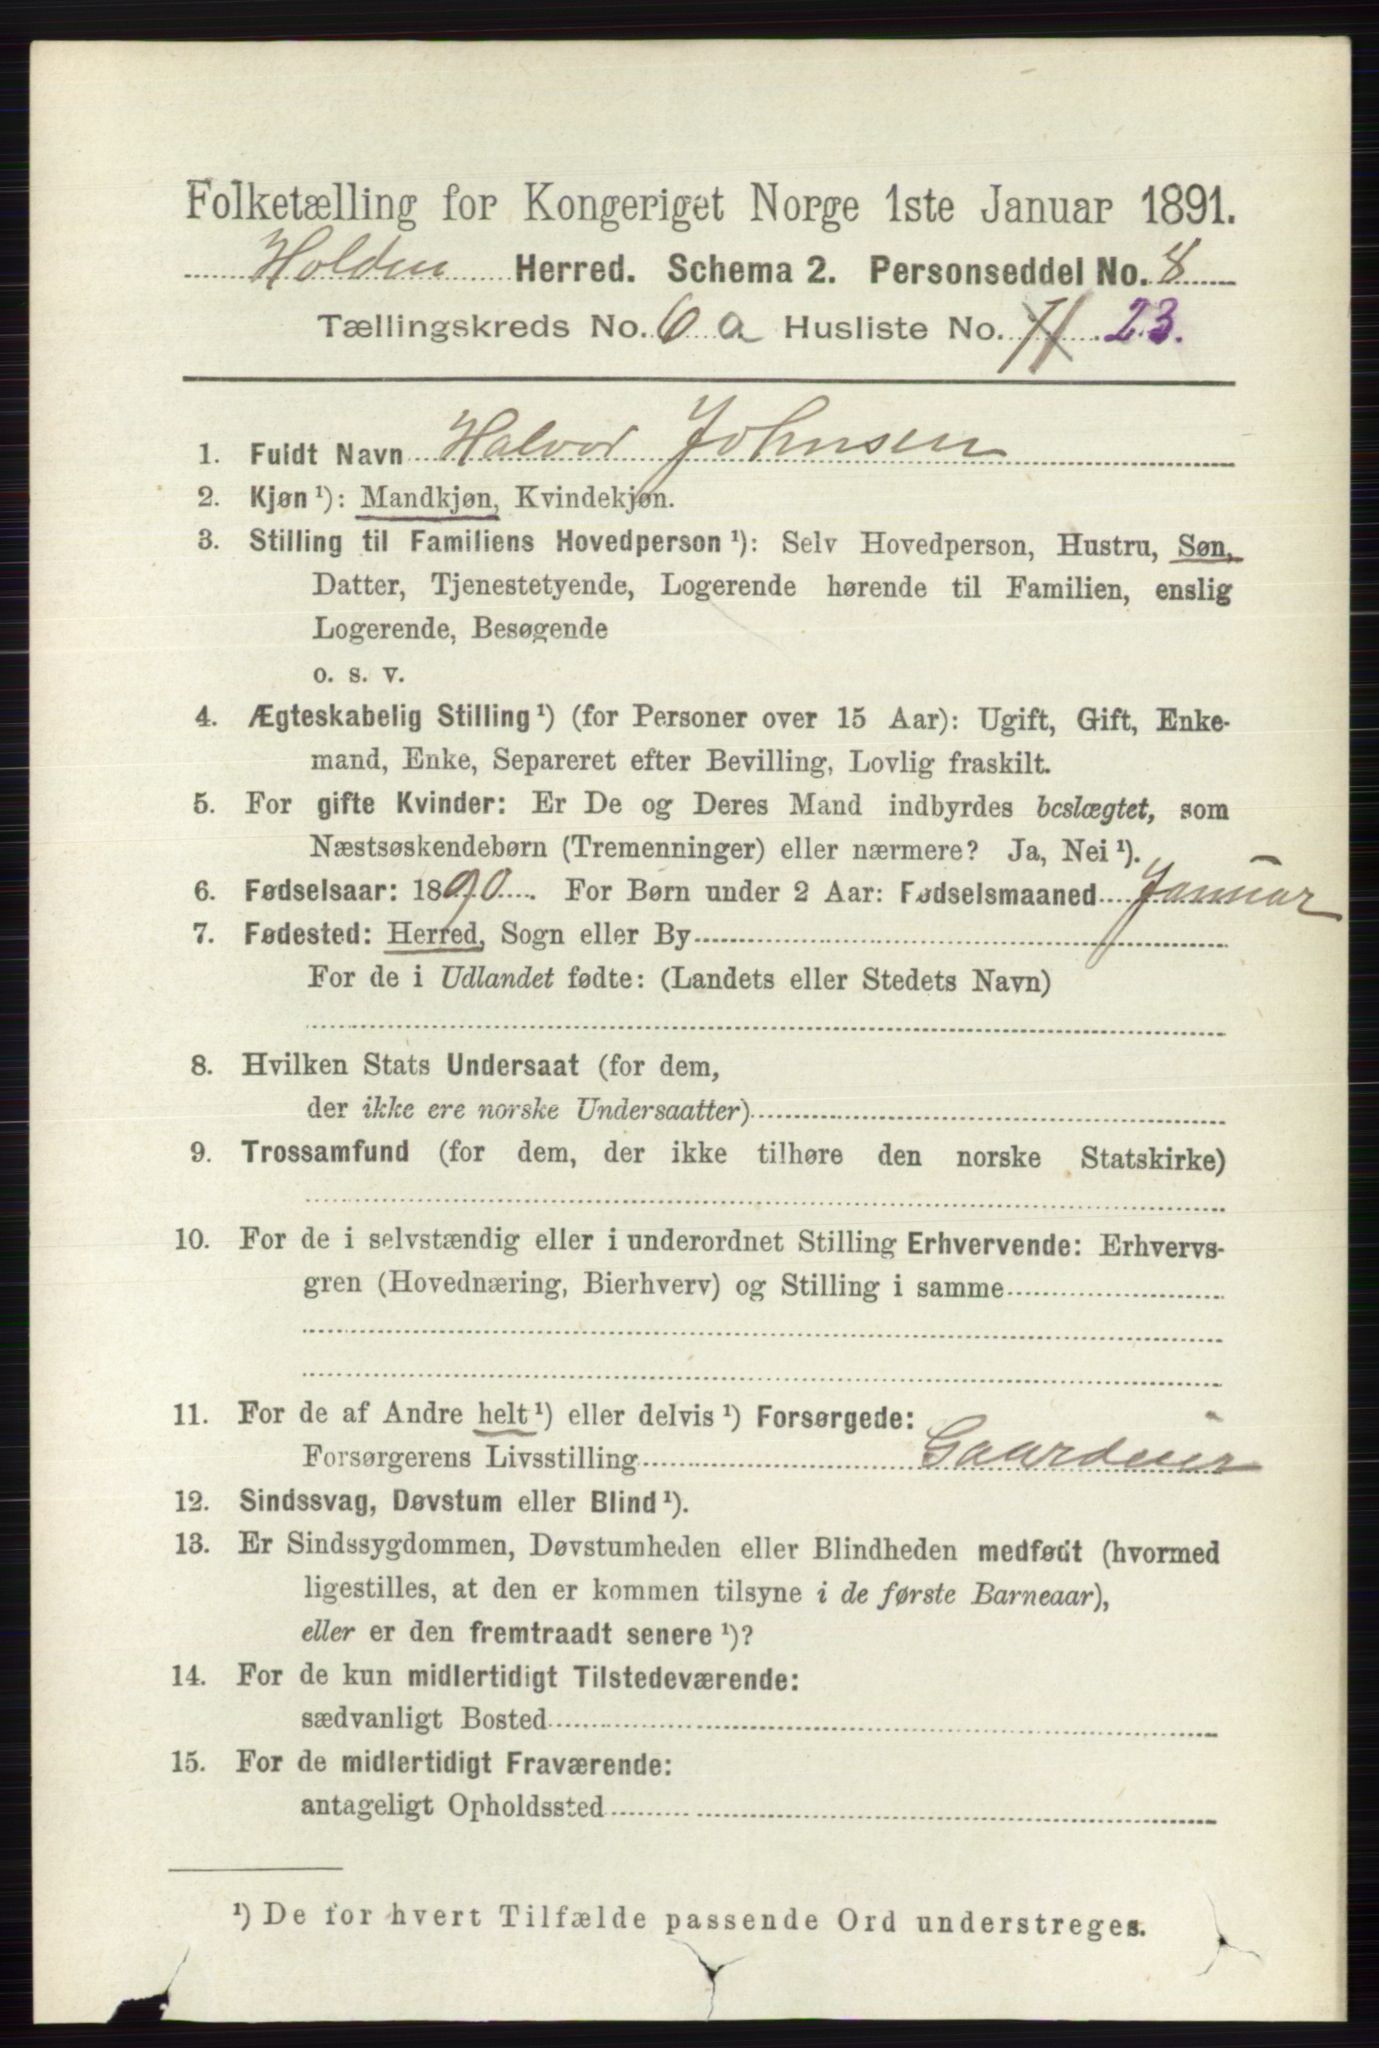 Folketælling for Kongeriget Norge 1ste Januar 1891.
Holden Herred. Schema 2. Personseddel No. 8
Tællingskreds No. 6 a Husliste No. 11 23.
1. Fuldt Navn Halvor Johnsen
2. Kjøn ¹): Mandkjøn, Kvindekjøn.
3. Stilling til Familiens Hovedperson ¹): Selv Hovedperson, Hustru, Søn,
Datter, Tjenestetyende, Logerende hørende til Familien, enslig
Logerende, Besøgende
o. s. v.
4. Ægteskabelig Stilling ¹) (for Personer over 15 Aar): Ugift, Gift, Enke-
mand, Enke, Separeret efter Bevilling, Lovlig fraskilt.
5. For gifte Kvinder: Er De og Deres Mand indbyrdes beslægtet, som
Næstsøskendebørn (Tremenninger) eller nærmere? Ja, Nei ¹).
6. Fødselsaar: 1890. For Børn under 2 Aar: Fødselsmaaned Januar
7. Fødested: Herred, Sogn eller By
For de i Udlandet fødte: (Landets eller Stedets Navn)
8. Hvilken Stats Undersaat (for dem,
der ikke ere norske Undersaatter)
9. Trossamfund (for dem, der ikke tilhøre den norske Statskirke)
10. For de i selvstændig eller i underordnet Stilling Erhvervende: Erhvervs-
gren (Hovednæring, Bierhverv) og Stilling i samme
11. For de af Andre helt ¹) eller delvis ¹) Forsørgede:
Forsørgerens Livsstilling Gaardeier
12. Sindssvag, Døvstum eller Blind ¹).
13. Er Sindssygdommen, Døvstumheden eller Blindheden medfødt (hvormed
ligestilles, at den er kommen tilsyne i de første Barneaar),
eller er den fremtraadt senere ¹)?
14. For de kun midlertidigt Tilstedeværende:
sædvanligt Bosted
15. For de midlertidigt Fraværende:
antageligt Opholdssted
¹) De for hvert Tilfælde passende Ord understreges.